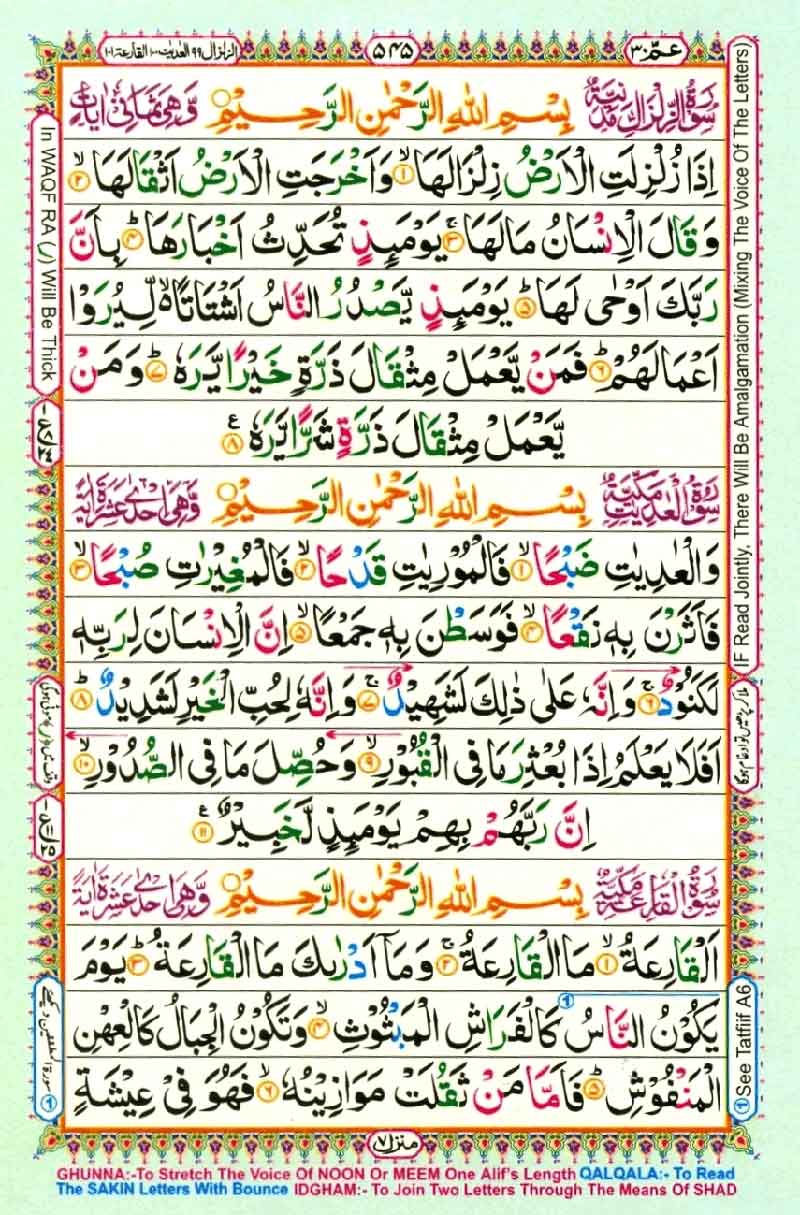 الزلزال ۹۹ العديت ۱۰۰ القارعة ۱۰۱
۵۴۵
عمّ ۳۰
سُوْرَةُ الزِّلْزَالِ مَدَنِيَّةٌ بِسْمِ اللهِ الرَّحْمٰنِ الرَّحِيْمِ وَّهِيَ ثَمَانِيْ اٰيَاتٍ
اِذَا زُلْزِلَتِ الْاَرْضُ زِلْزَالَهَا ۙ۱ وَاَخْرَجَتِ الْاَرْضُ اَثْقَالَهَا ۙ۲
وَقَالَ الْاِنْسَانُ مَالَهَا ۚ۳ يَوْمَئِذٍ تُحَدِّثُ اَخْبَارَهَا ۙ۴ بِاَنَّ
رَبَّكَ اَوْحٰى لَهَا ؕ۵ يَوْمَئِذٍ يَّصْدُرُ النَّاسُ اَشْتَاتًا ۙ۬ لِّيُرَوْا
اَعْمَالَهُمْ ؕ۶ فَمَنْ يَّعْمَلْ مِثْقَالَ ذَرَّةٍ خَيْرًا يَّرَهٗ ؕ۷ وَمَنْ
يَّعْمَلْ مِثْقَالَ ذَرَّةٍ شَرًّا يَّرَهٗ ۸ ع
سُوْرَةُ الْعٰدِيٰتِ مَكِّيَّةٌ بِسْمِ اللهِ الرَّحْمٰنِ الرَّحِيْمِ وَّهِيَ اِحْدٰى عَشْرَةَ اٰيَةً
وَالْعٰدِيٰتِ ضَبْحًا ۙ۱ فَالْمُوْرِيٰتِ قَدْحًا ۙ۲ فَالْمُغِيْرٰتِ صُبْحًا ۙ۳
فَاَثَرْنَ بِهٖ نَقْعًا ۙ۴ فَوَسَطْنَ بِهٖ جَمْعًا ۙ۵ اِنَّ الْاِنْسَانَ لِرَبِّهٖ
لَكَنُوْدٌ ۚ۶ وَاِنَّهٗ عَلٰى ذٰلِكَ لَشَهِيْدٌ ۚ۷ وَاِنَّهٗ لِحُبِّ الْخَيْرِ لَشَدِيْدٌ ؕ۸
اَفَلَا يَعْلَمُ اِذَا بُعْثِرَ مَا فِى الْقُبُوْرِ ۙ۹ وَحُصِّلَ مَا فِى الصُّدُوْرِ ۙ۱۰
اِنَّ رَبَّهُمْ بِهِمْ يَوْمَئِذٍ لَّخَبِيْرٌ ۱۱ ع
سُوْرَةُ الْقَارِعَةِ مَكِّيَّةٌ بِسْمِ اللهِ الرَّحْمٰنِ الرَّحِيْمِ وَّهِيَ اِحْدٰى عَشْرَةَ اٰيَةً
اَلْقَارِعَةُ ۙ۱ مَا الْقَارِعَةُ ۚ۲ وَمَاۤ اَدْرٰىكَ مَا الْقَارِعَةُ ؕ۳ يَوْمَ
يَكُوْنُ النَّاسُ كَالْفَرَاشِ الْمَبْثُوْثِ ۙ۴ وَتَكُوْنُ الْجِبَالُ كَالْعِهْنِ
الْمَنْفُوْشِ ؕ۵ فَاَمَّا مَنْ ثَقُلَتْ مَوَازِيْنُهٗ ۙ۶ فَهُوَ فِىْ عِيْشَةٍ
منزل ۷
In WAQF RA (ر) Will Be Thick
IF Read Jointly, There Will Be Amalgamation (Mixing The Voice Of The Letters)
۱ See Tatfiif A6
GHUNNA:-To Stretch The Voice Of NOON Or MEEM One Alif's Length QALQALA:- To Read
The SAKIN Letters With Bounce IDGHAM:- To Join Two Letters Through The Means Of SHAD